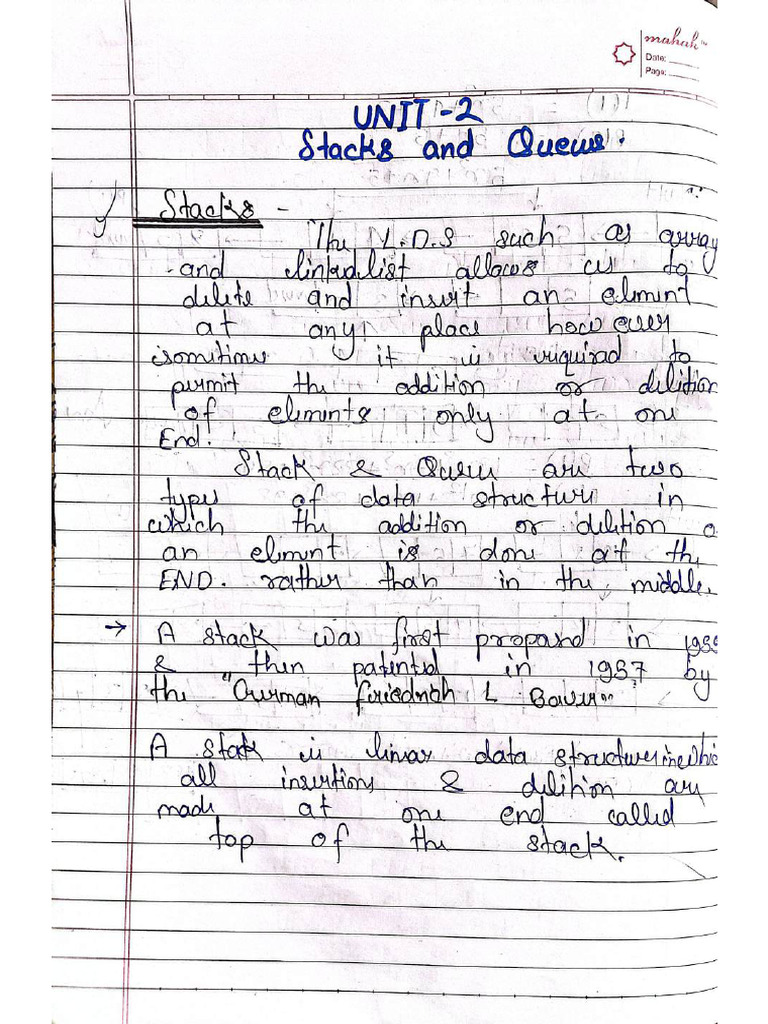 mahak
Date:
Page:
UNIT-2
Stacks and Queues.
Stacks -
The L.D.S such as array
and linkedlist allows us to
delete and insert an element
at any place however
sometimes it is required to
permit the addition or deletion
of elements only at one
End.
Stack & Queue are two
types of data structure in
which the addition or deletion o
an element is done at the
END. rather than in the middle.
→ A stack was first proposed in 195
& then patented in 1957 by
the "German Friedrich L Bauer".
A stack is linear data structure in whic
all insertions & deletion are
made at one end called
top of the stack.